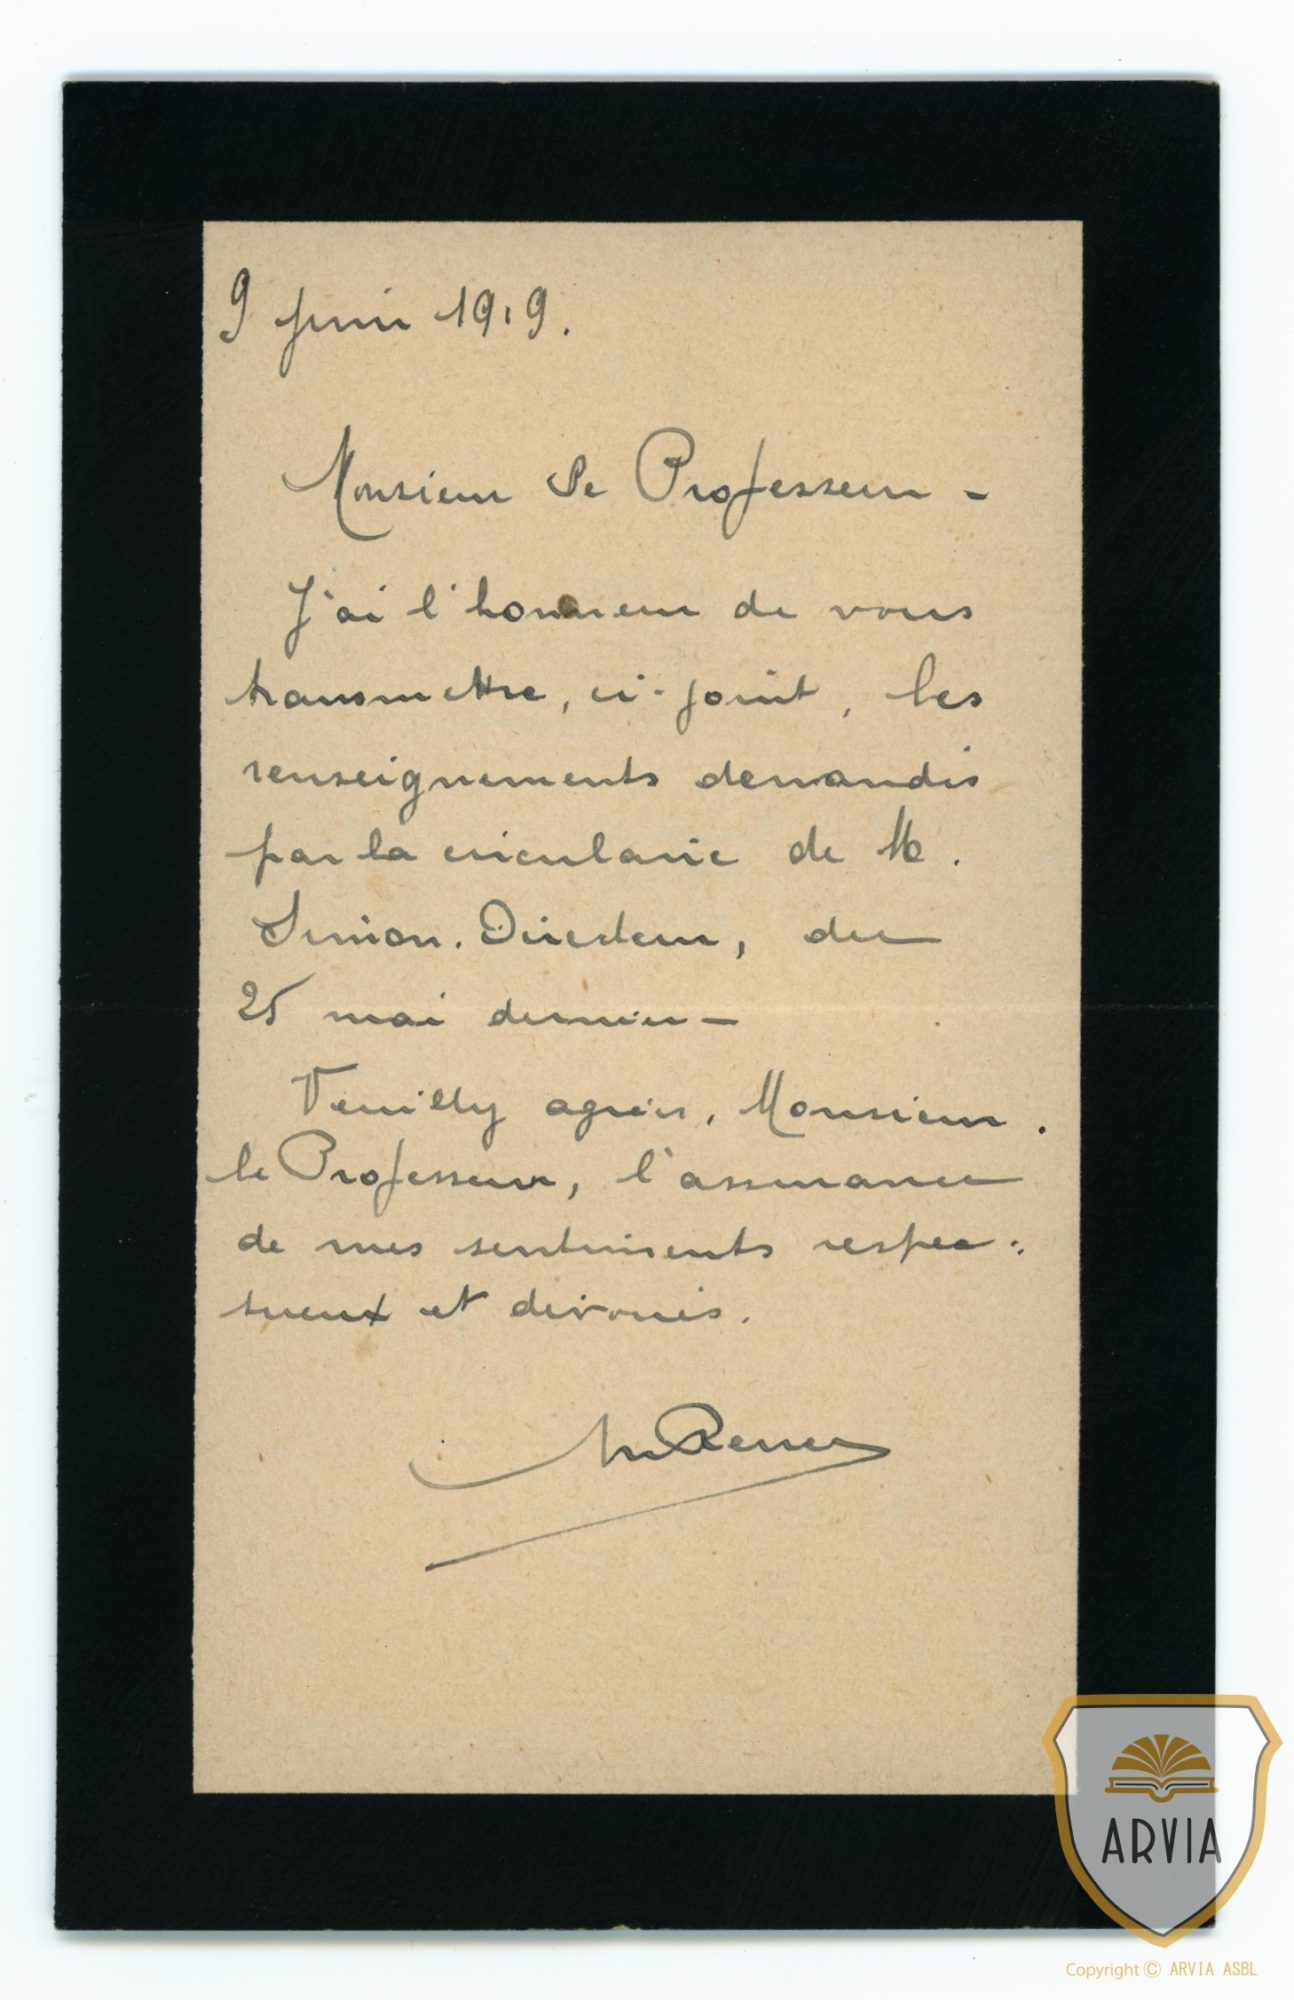 9 juin 1919.
Monsieur le Professeur -
J'ai l'honneur de vous
transmettre, ci-joint, les
renseignements demandés
par la circulaire de M.
Simon. Directeur, du
25 mai dernier -
Veuillez agréer, Monsieur
le Professeur, l'assurance
de mes sentiments respec-
tueux et dévoués.
ARVIA
Copyright © ARVIA ASBL